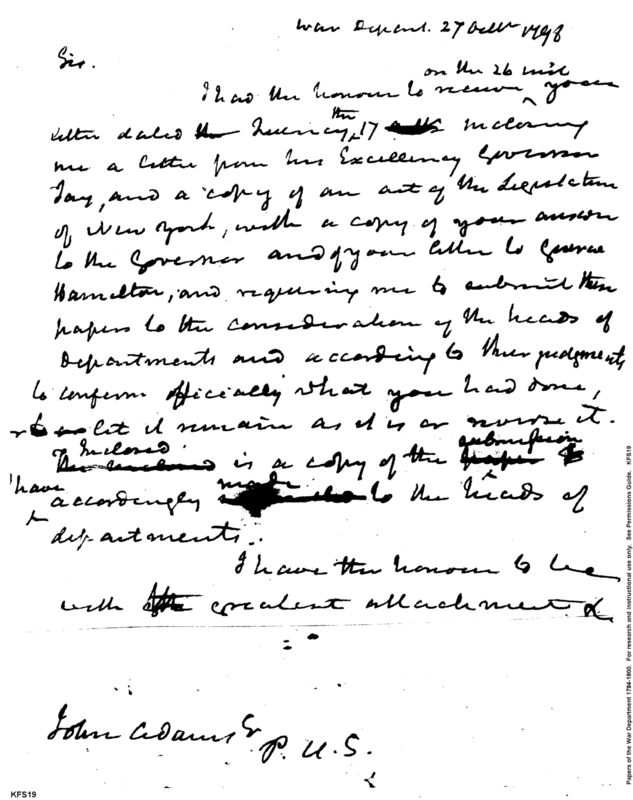 War Depart. 27 Octbr 1798
Sir.
on the 26 inst
I had the honour to receive ^ your
letter dated the Quincy, 17 inclosing
me a letter from his Excellency Governor
Jay, and a copy of an act of the Legislature
of New York, with a copy of your answer
to the Governor and of your letter to General
Hamilton, and requiring me to submit these
papers to the consideration of the heads of
departments and according to their judgments
to confirm officially what you had done,
let it remain as it is or reverse it.
Inclosed
The inclosed is a copy of the submission
papers
I have made
accordingly to the heads of
departments.
I have the honour to be
with the greatest attachment &
John Adams Esqr
P. U. S.
Papers of the War Department 1784-1800. For research and instructional use only. See Permissions Guide. KFS19
KFS19